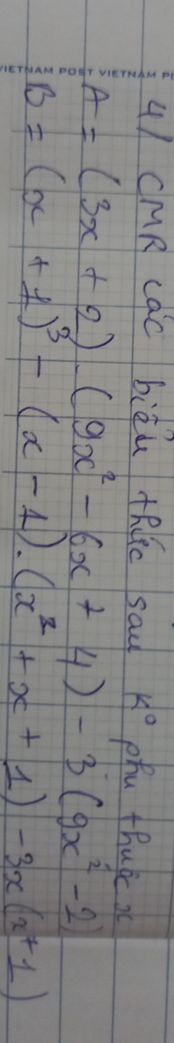 VIETNAM POST VIETNAM P
4/ CMR các biểu thức sau kº phụ thuộc x
A = (3x + 2).(9x² - 6x + 4) - 3(9x² - 2)
B = (x + 1)³ - (x - 1).(x² + x + 1) - 3x(x + 1)